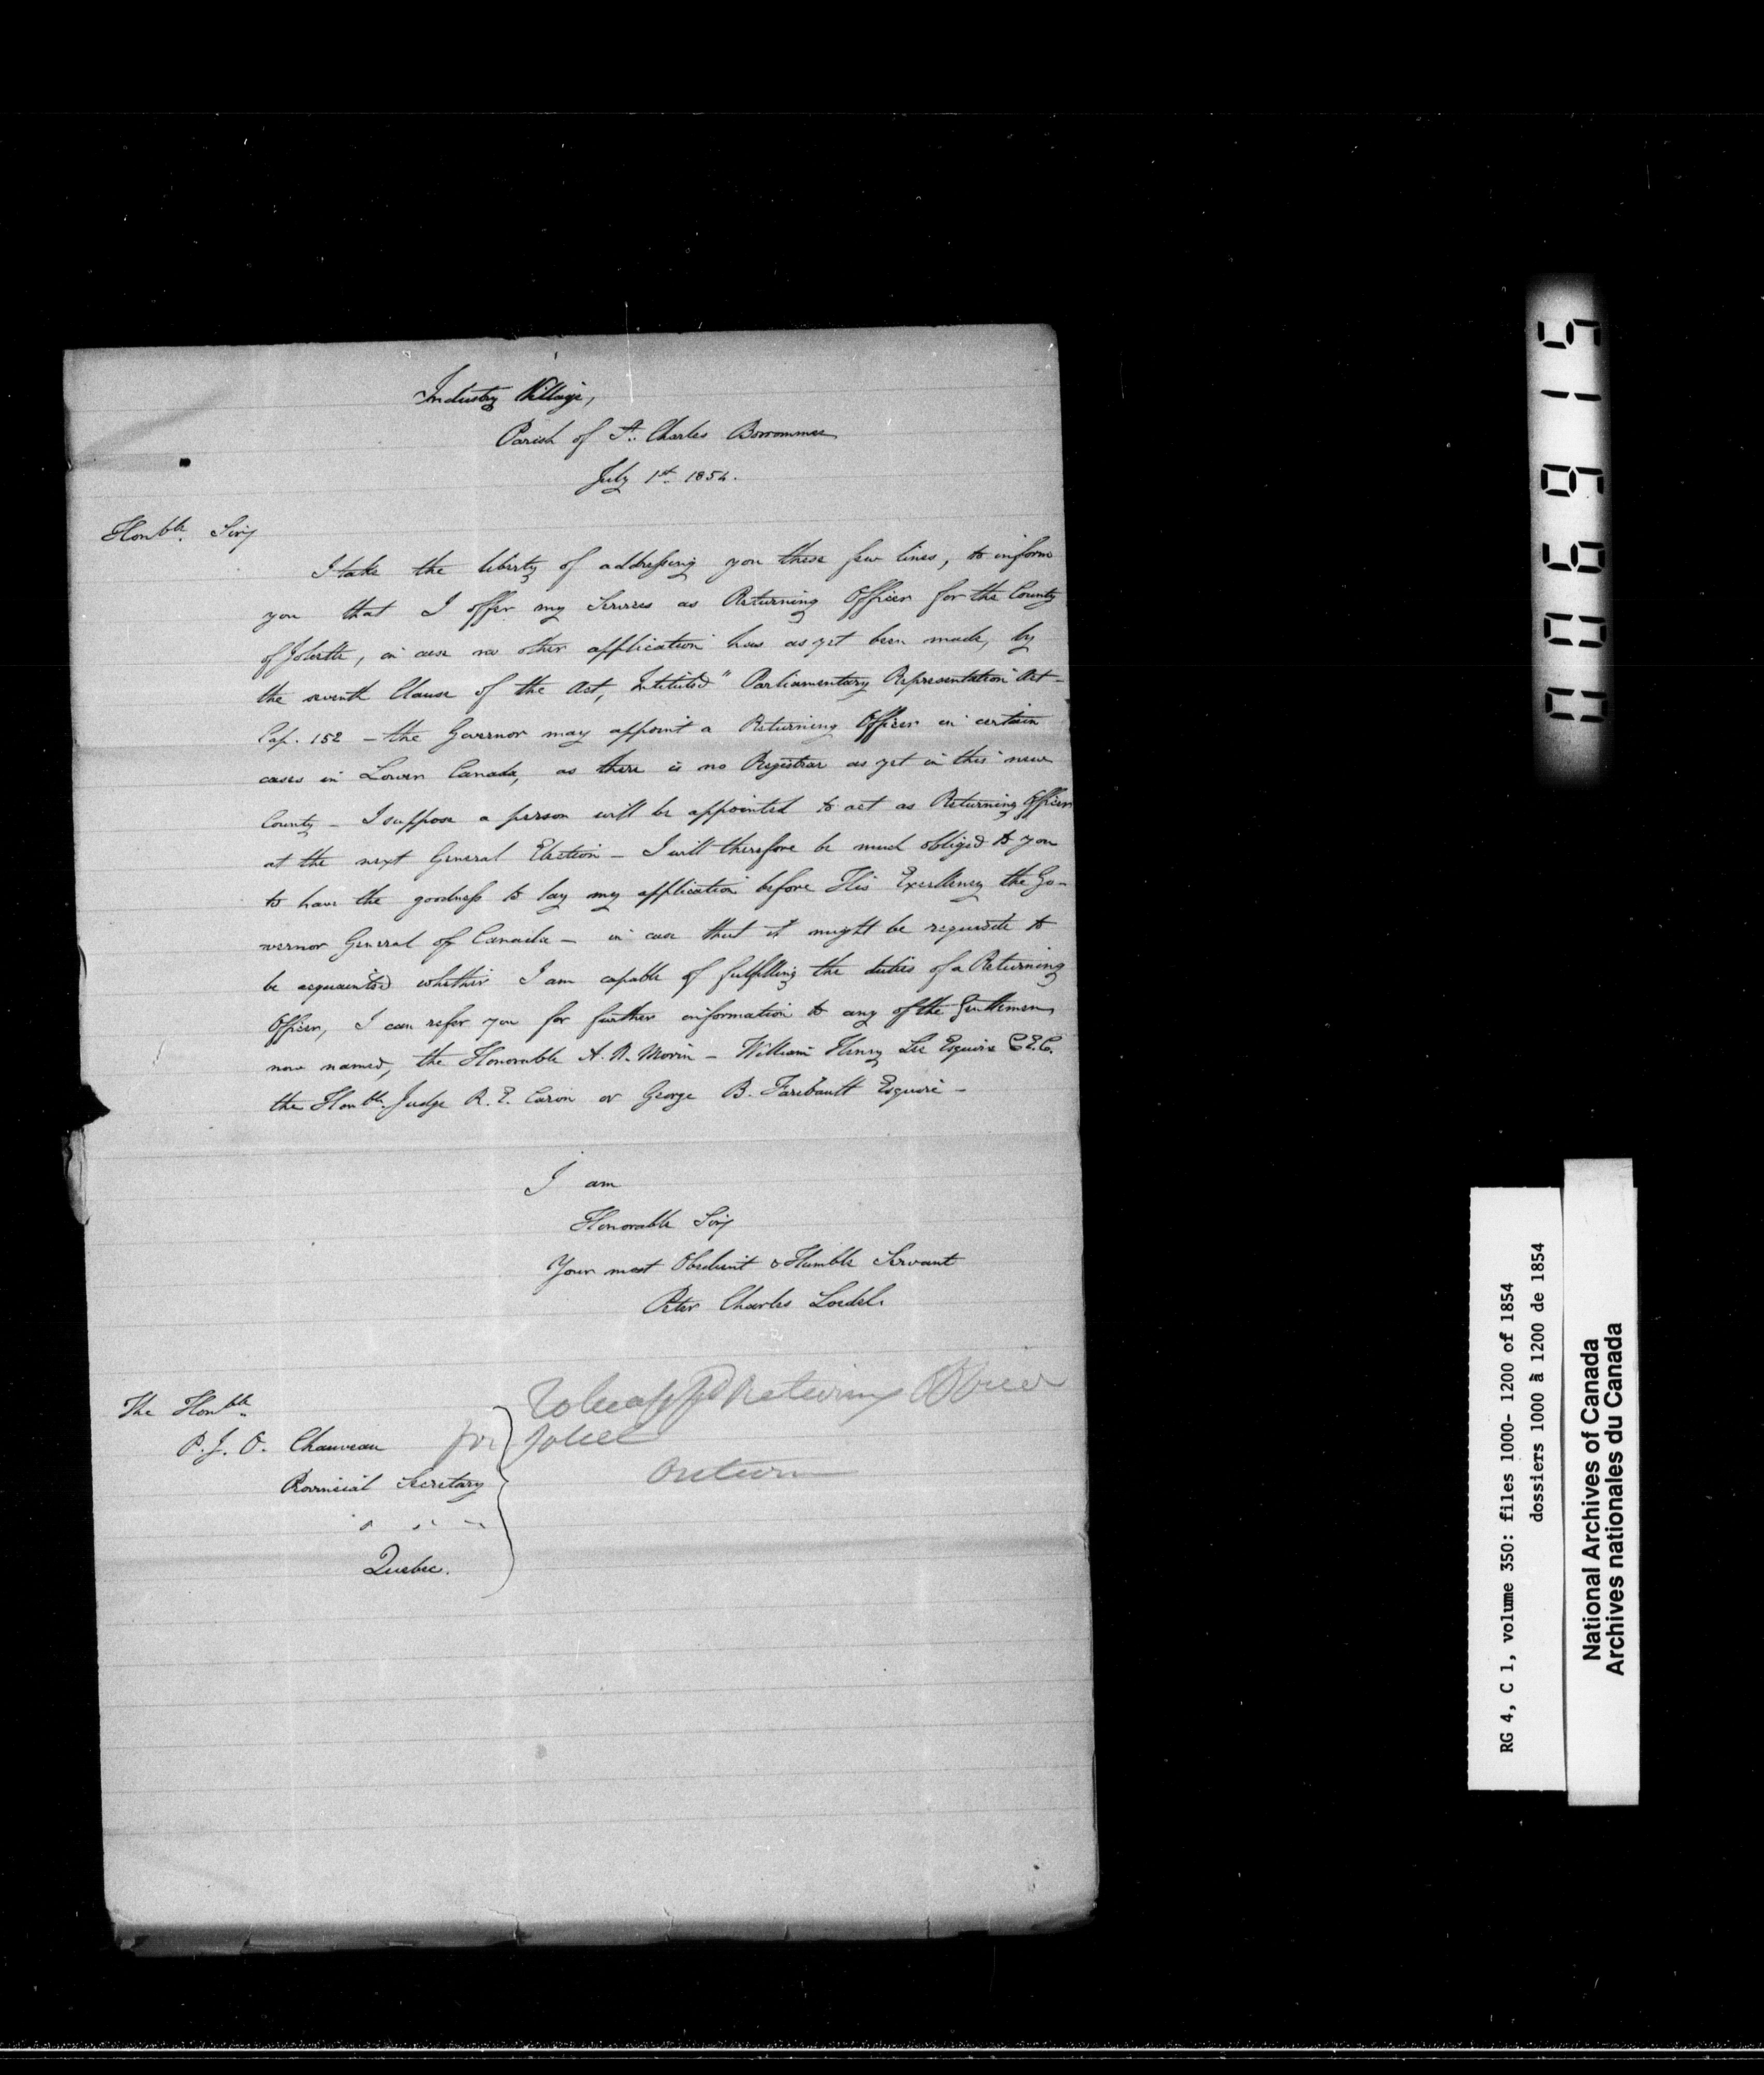 Industry Village,
Parish of St. Charles Borrommee
July 1st. 1854.
Honble. Sir,
I take the liberty of addressing you these few lines, to inform
you that I offer my Services as Returning Officer for the County
of Joliette, in case no other application has as yet been made, by
the seventh Clause of the Act, Intituled "Parliamentary Representation Act -
Cap. 152 - the Governor may appoint a Returning Officer in certain
cases in Lower Canada, as there is no Registrar as yet in this new
County - I suppose a person will be appointed to act as Returning Officer
at the next General Election - I will therefore be much obliged to you
to have the goodness to lay my application before His Excellency the Go-
vernor General of Canada - in case that it might be requisite to
be acquainted whether I am capable of fulfilling the duties of a Returning
Officer, I can refer you for further information to any of the Gentlemen
now named, the Honorable A. N. Morin - William Henry Lee Esquire C.E.C.
the Honble. Judge R. E. Caron or George B. Faribault Esquire -
I am
Honorable Sir,
Your most Obedient & Humble Servant
Peter Charles Loedel.
To be appd Returning Officer
for Joliet
The Honble.
P. J. O. Chauveau
Provincial Secretary
Quebec.
006915
RG 4, C 1, volume 350: files 1000- 1200 of 1854
dossiers 1000 à 1200 de 1854
National Archives of Canada
Archives nationales du Canada